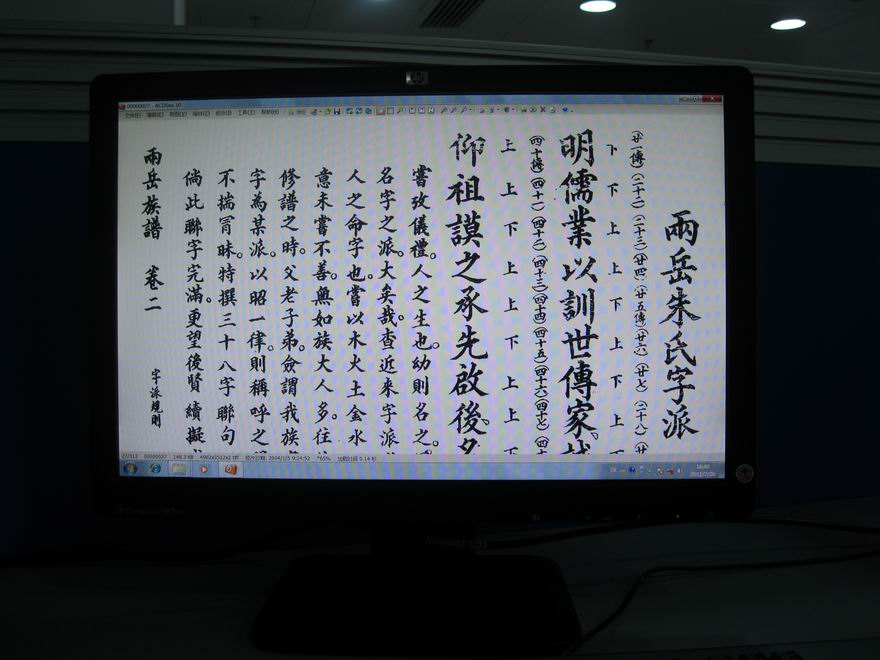 00000027 - ACDSee 10
兩岳朱氏字派
(廿一傳)(二十二)(二十三)(廿四)(廿五傳)(廿六)(廿七)(二十八)
下下上上下上下上下
明儒業以訓世傳家。
(四十傳)(四十一)(四十二)(四十三)(四十四)(四十五)(四十六)(四十七)
上上下上上下上上下
仰祖謨之承先啟後。
嘗攷儀禮。人之生也。幼則名之。
名字之派。大矣哉。查近來字派
人之命字也。嘗以木火土金水
意未嘗不善。無如族大人多。往
修譜之時。父老子弟。僉謂我族
字為某派。以昭一律。則稱呼之
不揣冒昧。特撰三十八字聯句
倘此聯字完滿。更望後賢續擬
兩岳族譜 卷二 字派規則
hp